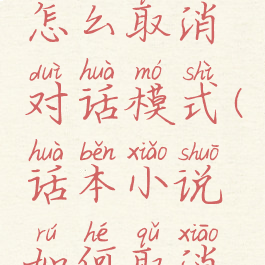 怎么取消
duì huà mó shì
对话模式(
huà běn xiǎo shuō
话本小说
rú hé qǔ xiāo
如何取消